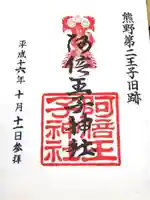 熊野第二王子旧跡
阿倍王子神社
阿倍王
子神社
平成十六年十月十二日参拝